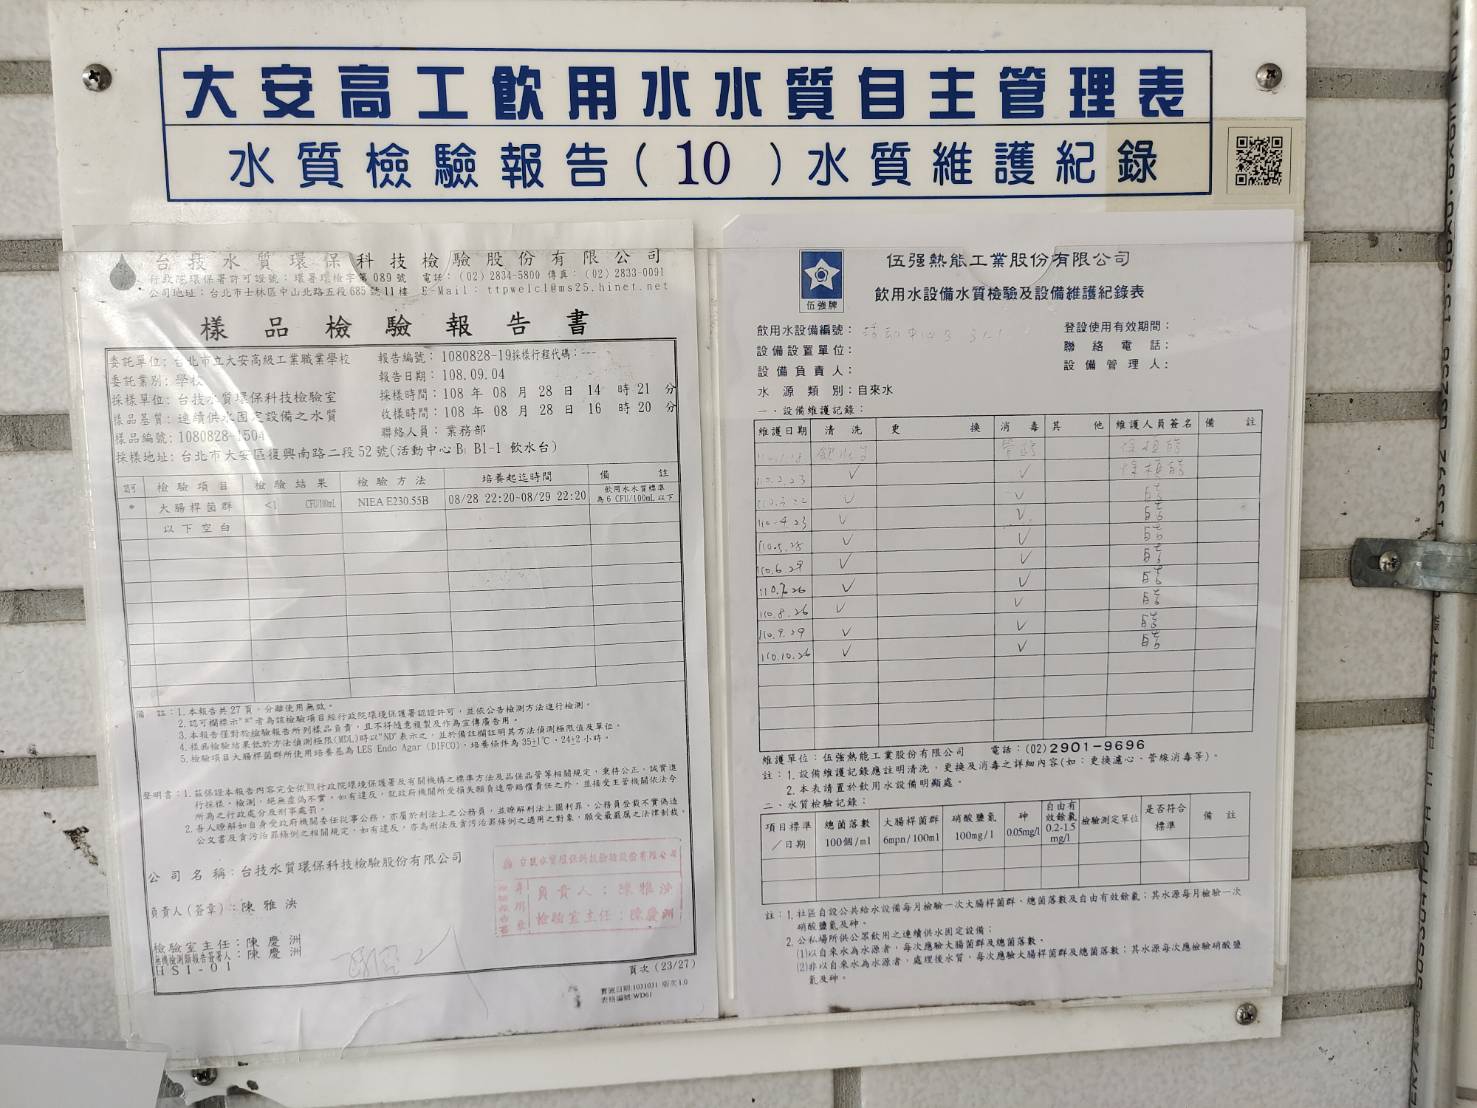 大安高工飲用水水質自主管理表
水質檢驗報告(10)水質維護紀錄
台技水質環保科技檢驗股份有限公司
行政院環保署許可證號：環署環檢字第089號 電話：(02)2834-5800 傳真：(02)2833-0091
公司地址：台北市士林區中山北路五段685號11樓 E-Mail：ttpwelcl@ms25.hinet.net
樣品檢驗報告書
委託單位：台北市立大安高級工業職業學校 報告編號：1080828-19採樣行程代碼：---
委託業別：學校 報告日期：108.09.04
採樣單位：台技水質環保科技檢驗室 採樣時間：108 年 08 月 28 日 14 時 21 分
樣品基質：連續供水固定設備之水質 收樣時間：108 年 08 月 28 日 16 時 20 分
樣品編號：1080828-1504 聯絡人員：業務部
採樣地址：台北市大安區復興南路二段52號(活動中心B B1-1 飲水台)
檢驗項目 檢驗結果 檢驗方法 培養起迄時間 備註
* 大腸桿菌群 <1 CFU/100mL NIEA E230.55B 08/28 22:20~08/29 22:20 飲用水水質標準為6 CFU/100mL以下
以下空白
備註：1.本報告共27頁，分離使用無效。
2.認可欄標示"*"者為該檢驗項目經行政院環境保護署認證許可，並依公告檢測方法進行檢測。
3.本報告僅對於檢驗報告所列樣品負責，且不得隨意複製及作為宣傳廣告用。
4.樣品檢驗結果低於方法偵測極限(MDL)時以"ND"表示之，並於備註欄註明其方法偵測極限值及單位。
5.檢驗項目大腸桿菌群所使用培養基為LES Endo Agar (DIFCO)，培養條件為35±1℃、24±2小時。
聲明書：1.茲保證本報告內容完全依照行政院環境保護署及有關機構之標準方法及品保品管等相關規定，秉持公正、誠實進
行採樣、檢測，絕無虛偽不實，如有違反，就政府機關所受損失願負連帶賠償責任之外，並接受主管機關依法令
所為之行政處分及刑事處罰。
2.吾人瞭解如自身受政府機關委任從事公務，亦屬於刑法上之公務員，並瞭解刑法上圖利罪、公務員登載不實偽造
公文書及貪污治罪條例之相關規定，如有違反，亦為刑法及貪污治罪條例之適用之對象，願受最嚴厲之法律制裁。
公司名稱：台技水質環保科技檢驗股份有限公司
負責人(簽章)：陳雅泱
檢驗室主任：陳慶洲
無機檢測類報告簽署人：陳慶洲
HSI-01
台技水質環保科技檢驗股份有限公司
負責人：陳雅泱
檢驗室主任：陳慶洲
頁次(23/27)
實施日期:1031031 版次1.0
表格編號:WD61
伍強牌
伍强熱能工業股份有限公司
飲用水設備水質檢驗及設備維護紀錄表
飲用水設備編號：活動中心B 登設使用有效期間：
設備設置單位： 聯絡電話：
設備負責人： 設備管理人：
水源類別：自來水
一．設備維護記錄：
維護日期 清洗 更換 消毒 其他 維護人員簽名 備註
110.2.23 ✓ ✓
110.3.22 ✓
110.4.23 ✓ ✓
110.5.25 ✓ ✓
110.6.29 ✓ ✓
110.7.26 ✓ ✓
110.8.26 ✓ ✓
110.9.29 ✓ ✓
110.10.26 ✓ ✓
維護單位：伍強熱能工業股份有限公司 電話：(02)2901-9696
註：1.設備維護記錄應註明清洗、更換及消毒之詳細內容(如：更換濾心、管線消毒等)。
2.本表請置於飲用水設備明顯處。
二、水質檢驗記錄：
項目標準／日期 總菌落數 100個/ml 大腸桿菌群 6mpn/100ml 硝酸鹽氮 100mg/l 砷 0.05mg/l 自由有效餘氯 0.2-1.5 mg/l 檢驗測定單位 是否符合標準 備註
註：1.社區自設公共給水設備每月檢驗一次大腸桿菌群、總菌落數及自由有效餘氯；其水源每月檢驗一次
硝酸鹽氮及砷。
2.公私場所供公眾飲用之連續供水固定設備：
(1)以自來水為水源者，每次應驗大腸菌群及總菌落數。
(2)非以自來水為水源者，處理後水質，每次應驗大腸桿菌群及總菌落數；其水源每次應檢驗硝酸鹽
氮及砷。